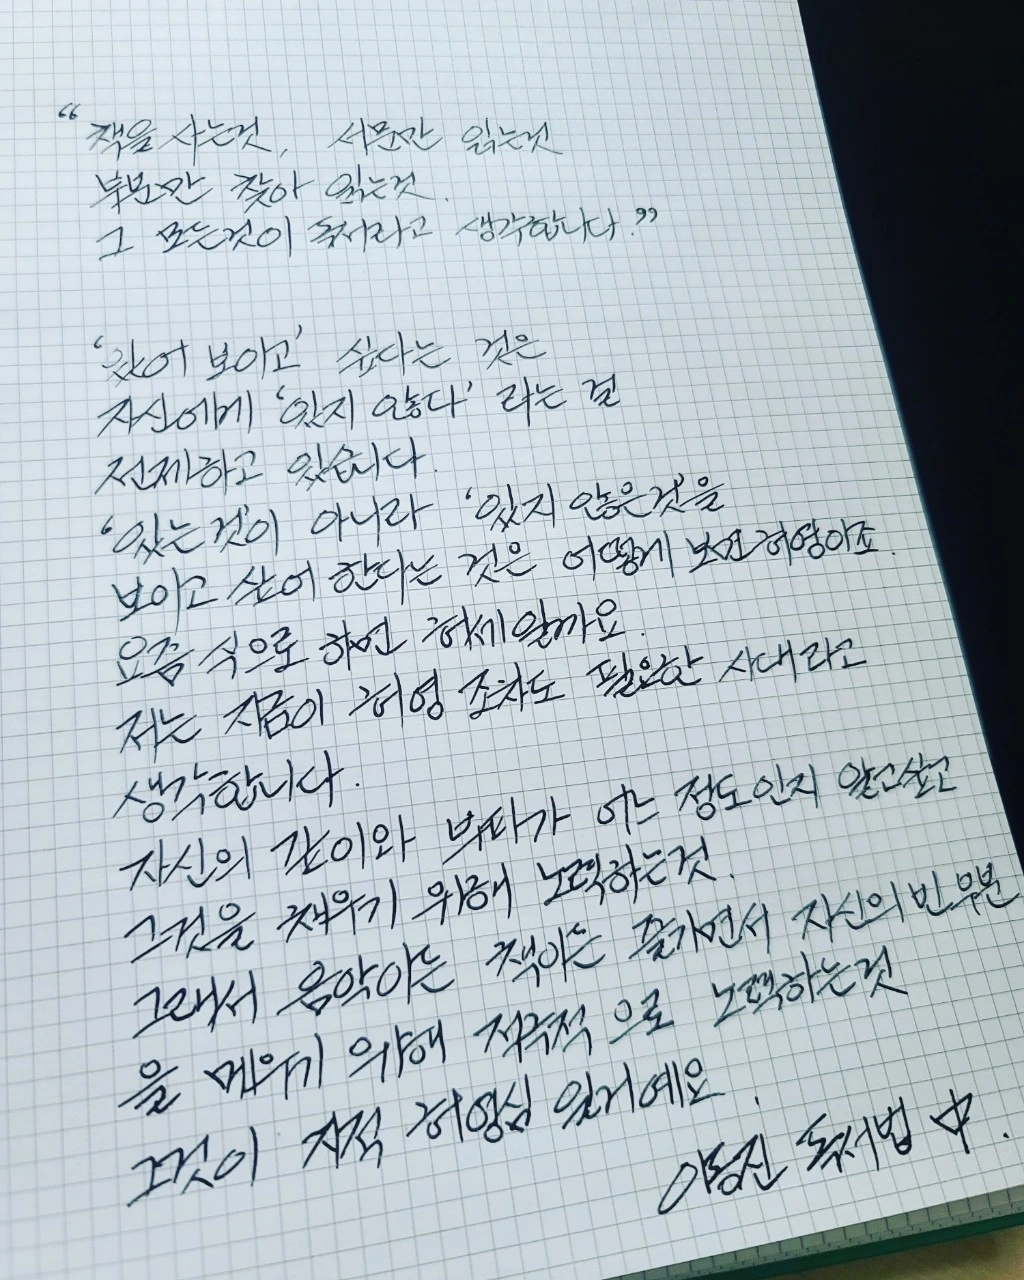 “책을 사는것, 서문만 읽는것
부분만 찾아 읽는것.
그 모든것이 독서라고 생각합니다.”
‘있어 보이고’ 싶다는 것은
자신에게 ‘있지 않다’ 라는 걸
전제하고 있습니다.
‘있는것’이 아니라 ‘있지 않은것’을
보이고 싶어 한다는 것은 어떻게 보면 허영이죠.
요즘 식으로 하면 허세일까요.
저는 지금이 허영 조차도 필요한 시대라고
생각합니다.
자신의 깊이와 부피가 어느 정도인지 알고싶고
그것을 채우기 위해 노력하는것.
그래서 음악이든 책이든 즐기면서 자신의 빈 부분
을 메우기 위해 적극적 으로 노력하는것
그것이 지적 허영심 일거예요.
이동진 독서법 中.